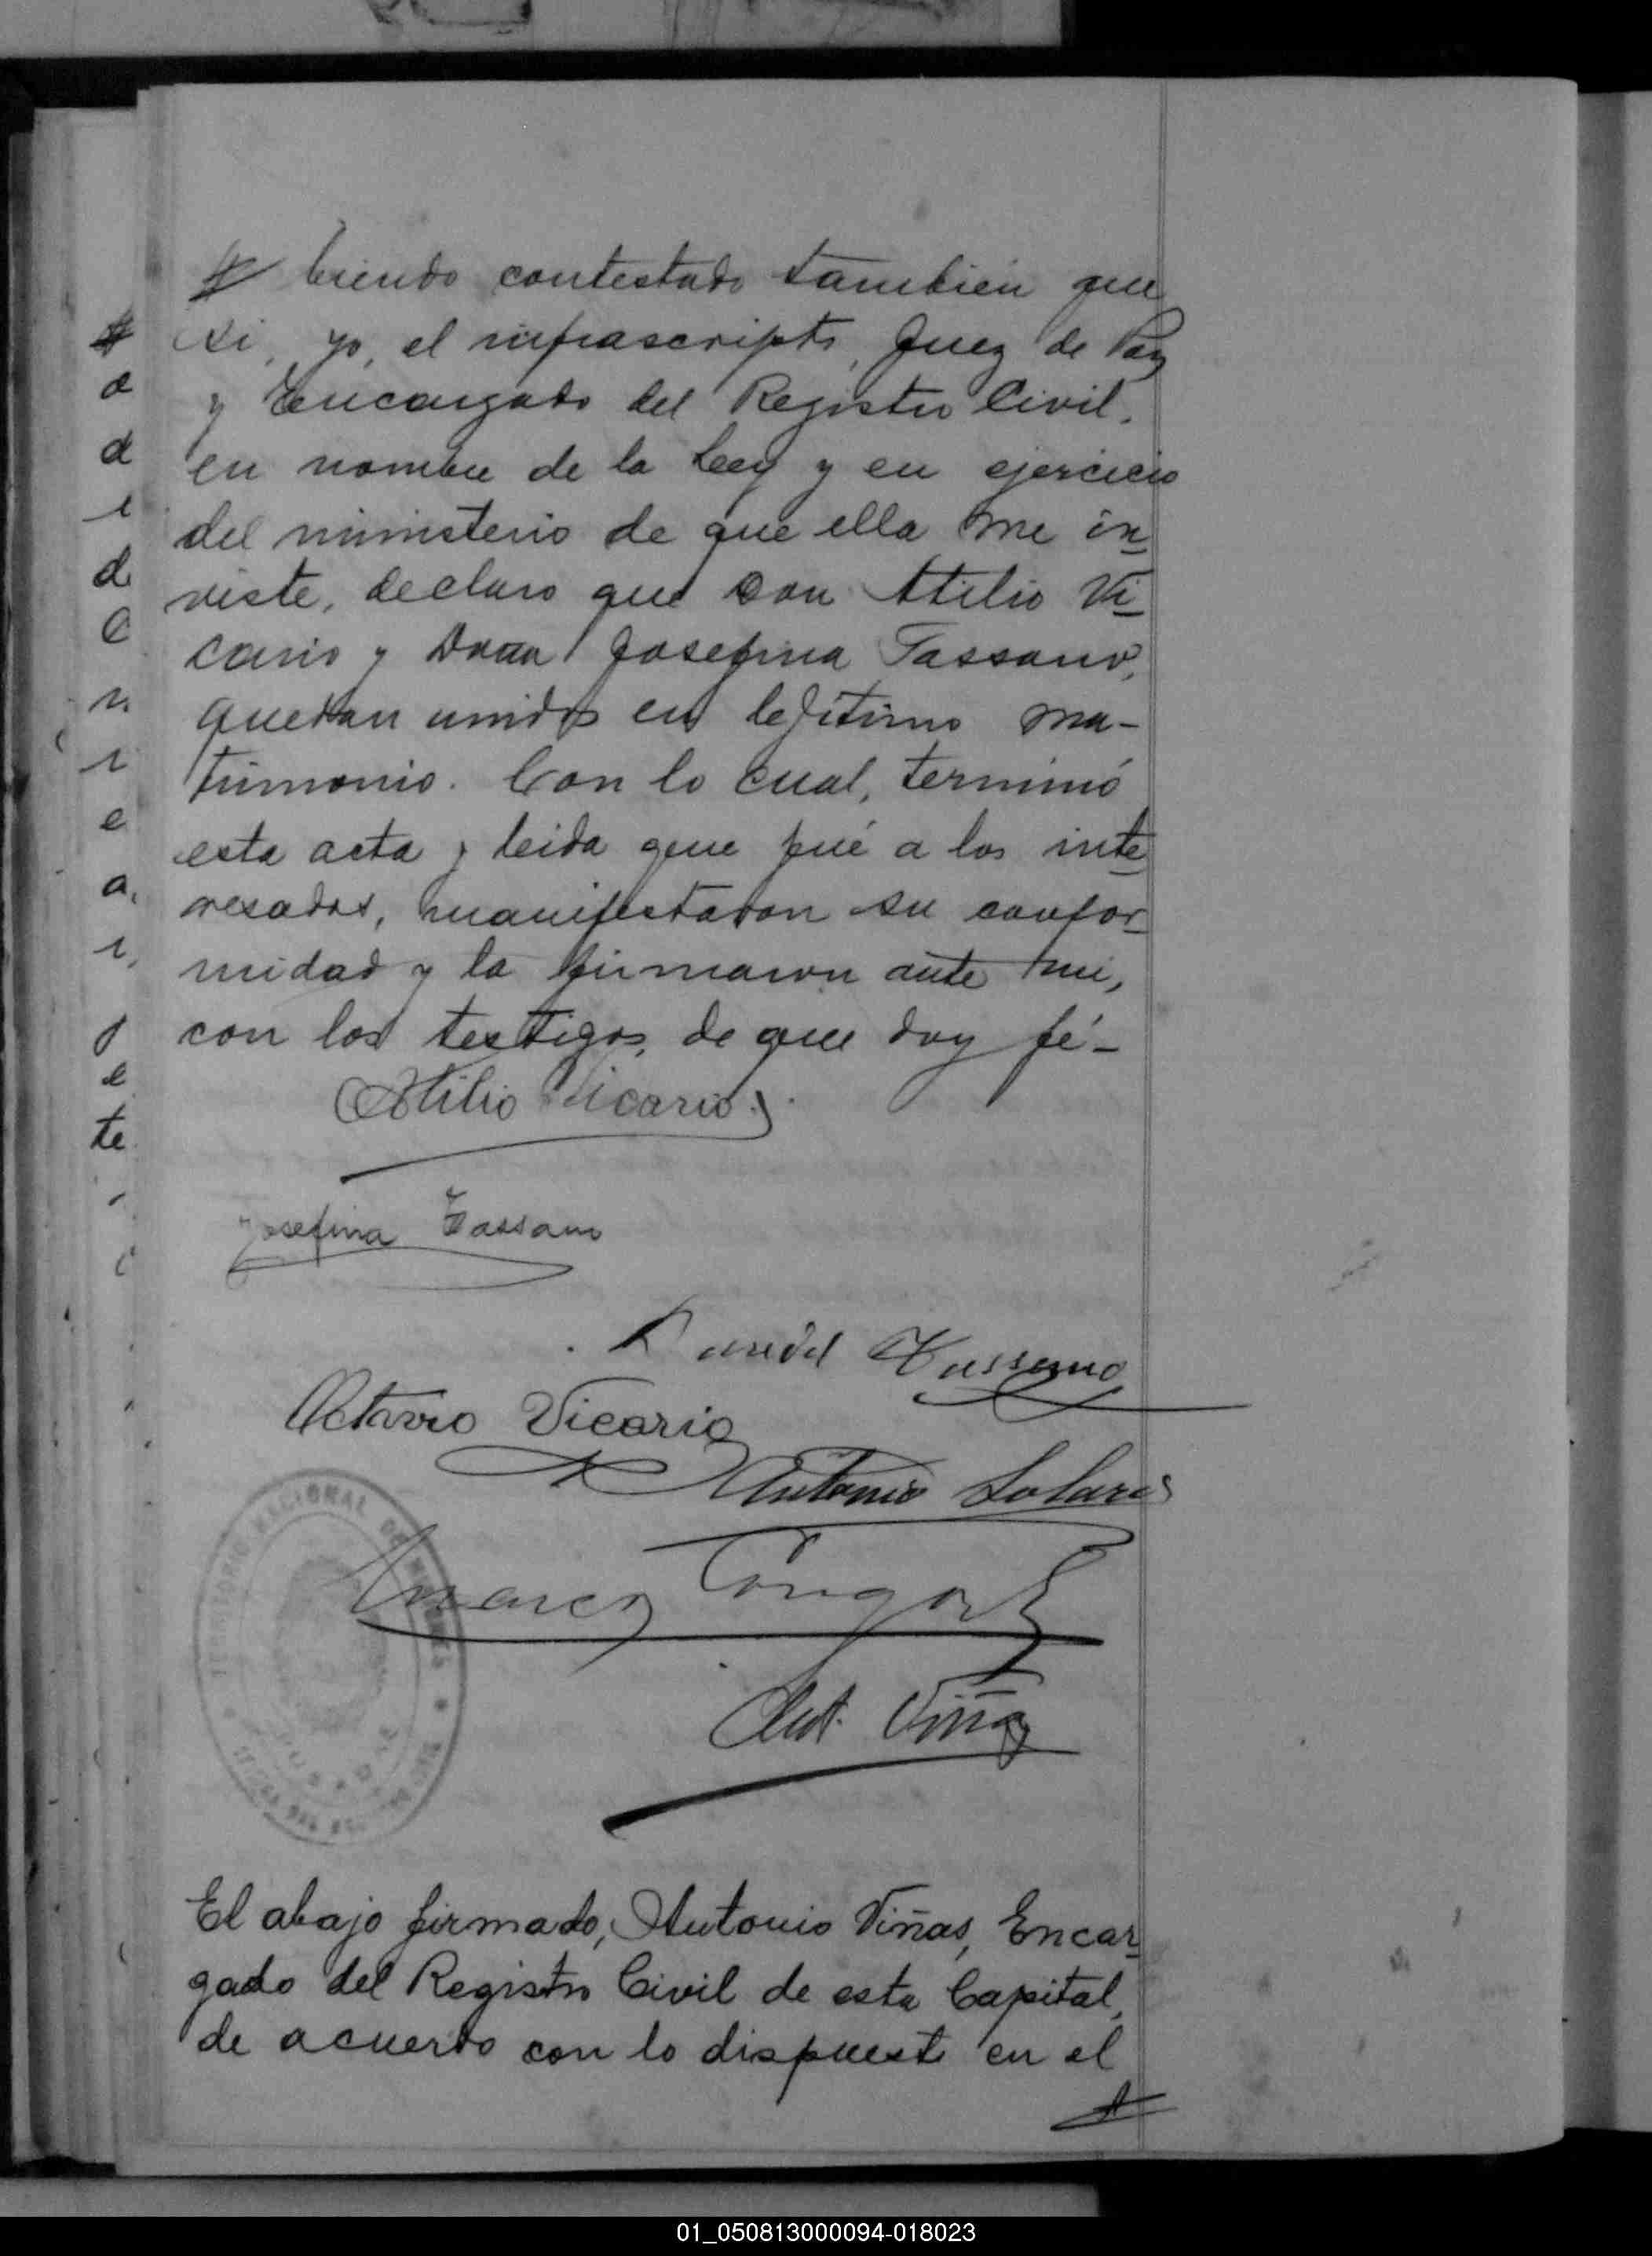 biendo contestado tambien que
si, yo, el infrascripto, Juez de Paz
y Encargado del Registro Civil,
en nombre de la Ley y en ejercicio
del ministerio de que ella me in
viste, declaro que Don Atilio Vi
cario y Doña Josefina Tassano,
quedan unidos en lejítimo ma-
trimonio. Con lo cual, terminó
esta acta y leida que fué a los inte
resados, manifestaron su confor
midad y la firmaron ante mi,
con los testigos, de que doy fé-
Atilio Vicario
Josefina Tassano
Tassano
Octavio Vicario
Antonio Solari
Ant. Viñas
TERRITORIO NACIONAL DE MISIONES
El abajo firmado, Antonio Viñas, Encar
gado del Registro Civil de esta Capital,
de acuerdo con lo dispuesto en el
01_050813000094-018023